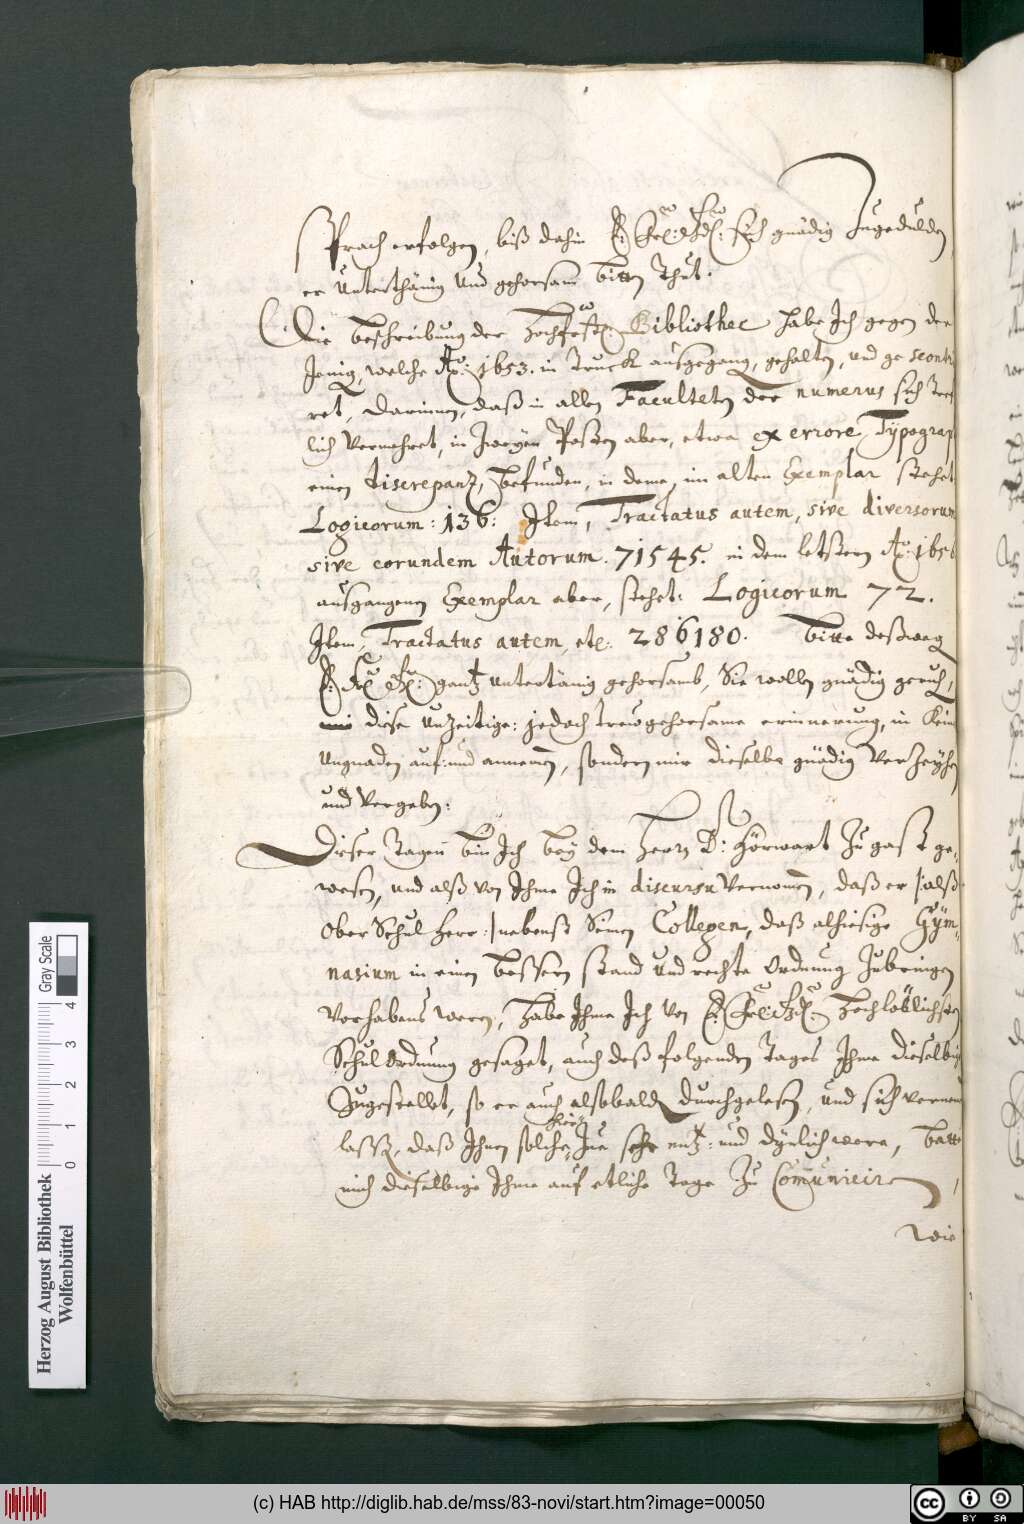 sprach erfolgen, biß dahin E. Frl: dhl: sich gnädig Zugedulden
er Unterthänig und gehorsam bitten Thut.
Die beschreibung der Hochfürstl: Bibliothec habe Ich gegen der
Jenig, welche Aō: 1653. in Truck ausgegang, gehalten, und ge scontri
ret, darinnen, daß in allen Faculteten der numerus sich Treff
lich Vermehret, in Zweyen Posten aber, etwa ex errore, Typograp
einen discrepanz, befunden, in deme, im alten Exemplar stehet
Logicorum: 136: Item, Tractatus autem, sive diversorum
sive eorundem Autorum. 71545. in dem letstern Aō: 165
ausgangenen Exemplar aber, stehet: Logicorum 72.
Item, Tractatus autem, etc. 286180. bitte deßweg
E. Frl dhl: gantz untertänig gehorsamb, Sie wollen gnädig geruh,
diese unzeitige: jedoch trewgehorsame erinnerung, in Kein
Ungnaden auf: und annemen, sondern mir dieselbe gnädig Verzeyhen
und Vergeben:
Dieser Tagen bin Ich bey dem Herrn D: Hörwart Zu gast ge„
wesen, und alß von Ihme Ich in discursu Vernomen, daß er |:alß
Ober Schul Herr:| nebenß Seinen Collegen, daß alhiesige Gÿm„
nasium in einen bessern stand und rechte Ordnung Zubringen
Vorhabens weren, habe Ihme Ich von E. Frl: dhl: Hochlöblichsten
Schul Ordnung gesaget, auch deß folgenden Tages Ihme dieselbig
Zugestellet, so er auch alsobald durchgelesen, und sich vernem
lassen, daß Ihnen solche, Zue sehr nutz: und dÿnlich were, batte
mich dieselbige Ihme auf etliche Tage Zu Comunicirn,
wie
Herzog August Bibliothek
Wolfenbüttel
Gray Scale
0 1 2 3 4
(c) HAB http://diglib.hab.de/mss/83-novi/start.htm?image=00050
cc BY SA